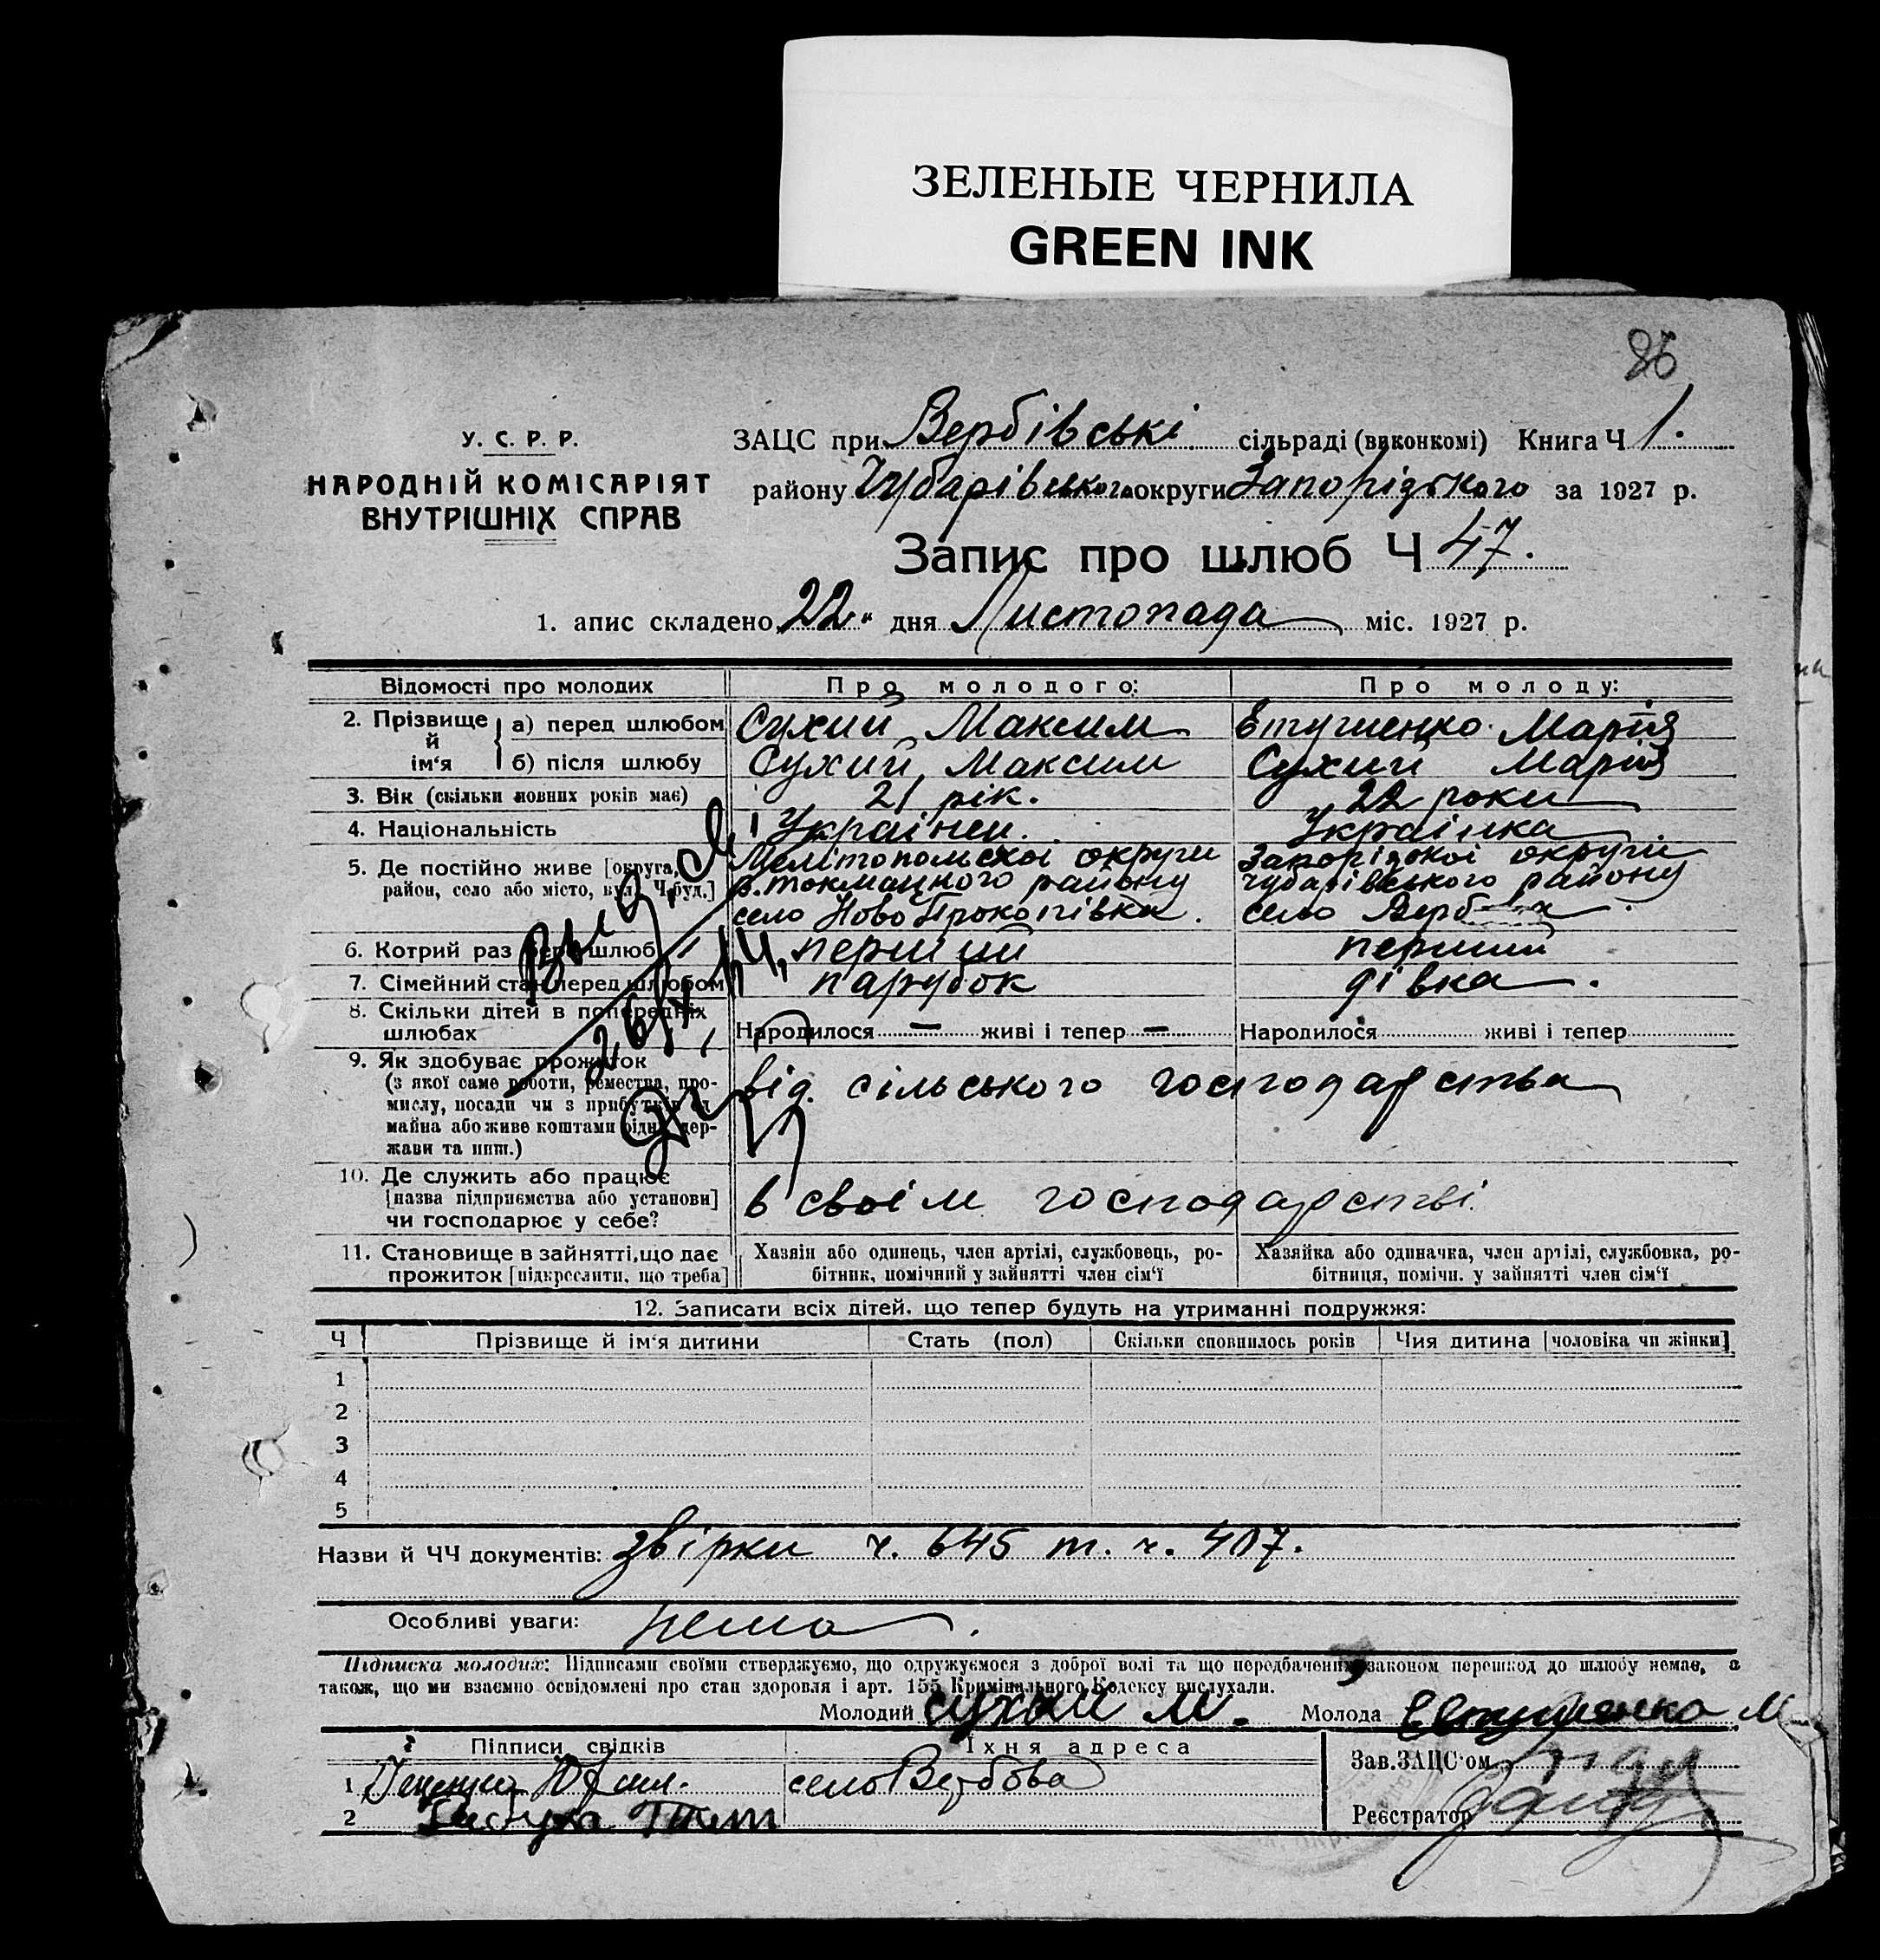 ЗЕЛЕНЫЕ ЧЕРНИЛА
GREEN INK
86
У. С. Р. Р.
НАРОДНІЙ КОМІСАРІЯТ
ВНУТРІШНІХ СПРАВ
ЗАЦС при Вербівські сільраді (виконкомі) Книга Ч 1.
району Чубарівського округи Запорізького за 1927 р.
Запис про шлюб Ч 47.
1. апис складено 22 " дня Листопада міс. 1927 р.
Відомості про молодих Про молодого: Про молоду:
2. Прізвище й ім'я а) перед шлюбом Сухий Максим Етушенко Марія
б) після шлюбу Сухий, Максим Сухий Марія
3. Вік (скільки повних років має) 21 рік. 22 роки
4. Національність Українец. Українка
5. Де постійно живе [округа, район, село або місто, вул. Ч буд.]
Мелітопольскоі округи
В. Токмацкого району
село Ново Прокопівка.
Запорізскоі округи
Чубарівського району
село
6. Котрий раз шлюб перший перший
7. Сімейний стан перед шлюбом парубок дівка.
8. Скільки дітей в попередніх шлюбах Народилося — живі і тепер — Народилося живі і тепер
9. Як здобуває прожиток
(з якої саме роботи, ремества, промислу, посади чи з прибутків од майна або живе коштами рідні, держави та инш.)
від. сільського господарства
10. Де служить або працює
[назва підприємства або установи]
чи господарює у себе?
в своім господарстві.
11. Становище в зайнятті, що дає
прожиток [підкреслити, що треба]
Хазяін або одинець, член артілі, службовець, робітник, помічний у зайнятті член сім'ї
Хазяйка або одиначка, член артілі, службовка, робітниця, помічн. у зайнятті член сім'ї
12. Записати всіх дітей, що тепер будуть на утриманні подружжя:
Ч Прізвище й ім'я дитини Стать (пол) Скільки сповнилось років Чия дитина [чоловіка чи жінки]
1
2
3
4
5
Назви й ЧЧ документів: звірки ч. 645 т. ч. 407.
Особливі уваги: нема.
Підписка молодих: Підписами своїми стверджуємо, що одружуємося з доброї волі та що передбачених законом перешкод до шлюбу немає, а
також, що ми взаємно освідомлені про стан здоровля і арт. 155 Кримінального Кодексу вислухали.
Молодий Сухий М. Молода Евтушенко М
Підписи свідків Їхня адреса
1 село Вербова
2
Зав. ЗАЦС'ом
Реєстратор